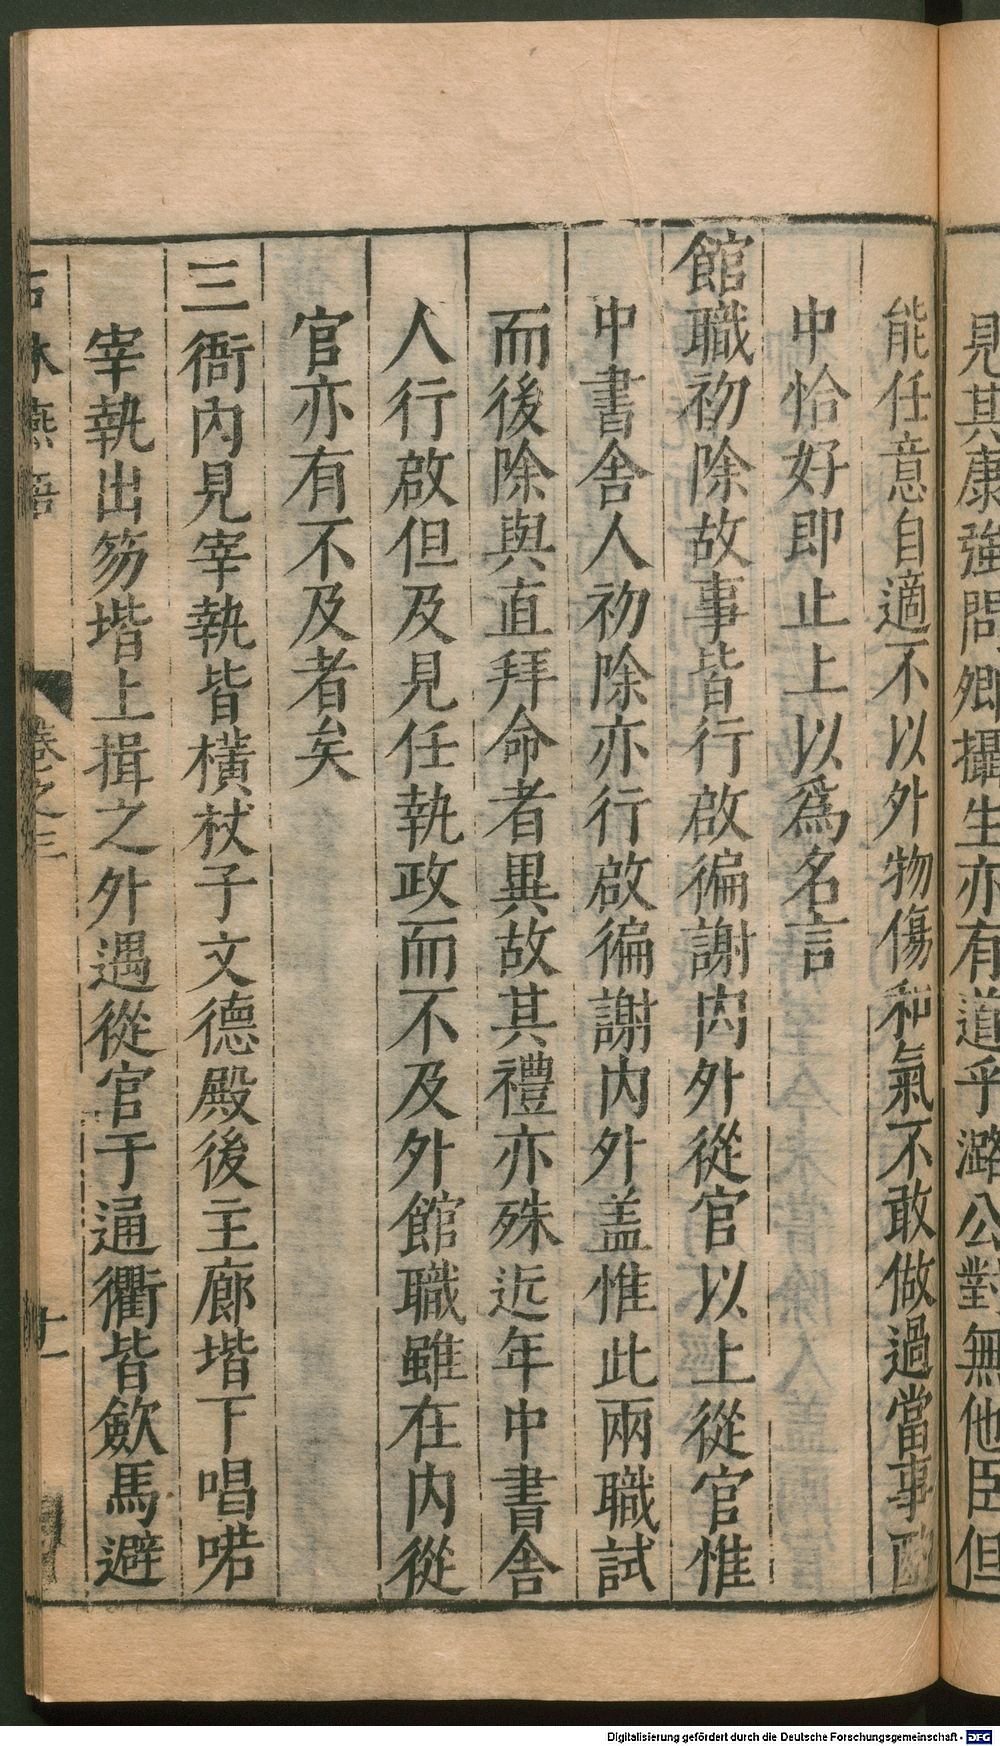 見其康強問卿攝生亦有道乎潞公對無他臣但
能任意自適不以外物傷和氣不敢做過當事酌
中恰好即止上以為名言
館職初除故事皆行啟徧謝内外從官以上從官惟
中書舍人初除亦行啟徧謝内外盖惟此兩職試
而後除與直拜命者異故其禮亦殊近年中書舍
人行啟但及見任執政而不及外館職雖在内從
官亦有不及者矣
三衙内見宰執皆橫杖子文德殿後主廊堦下唱喏
宰執出笏堦上揖之外遇從官于通衢皆歛馬避
石林燕語 卷之三 十一
Digitalisierung gefördert durch die Deutsche Forschungsgemeinschaft - DFG